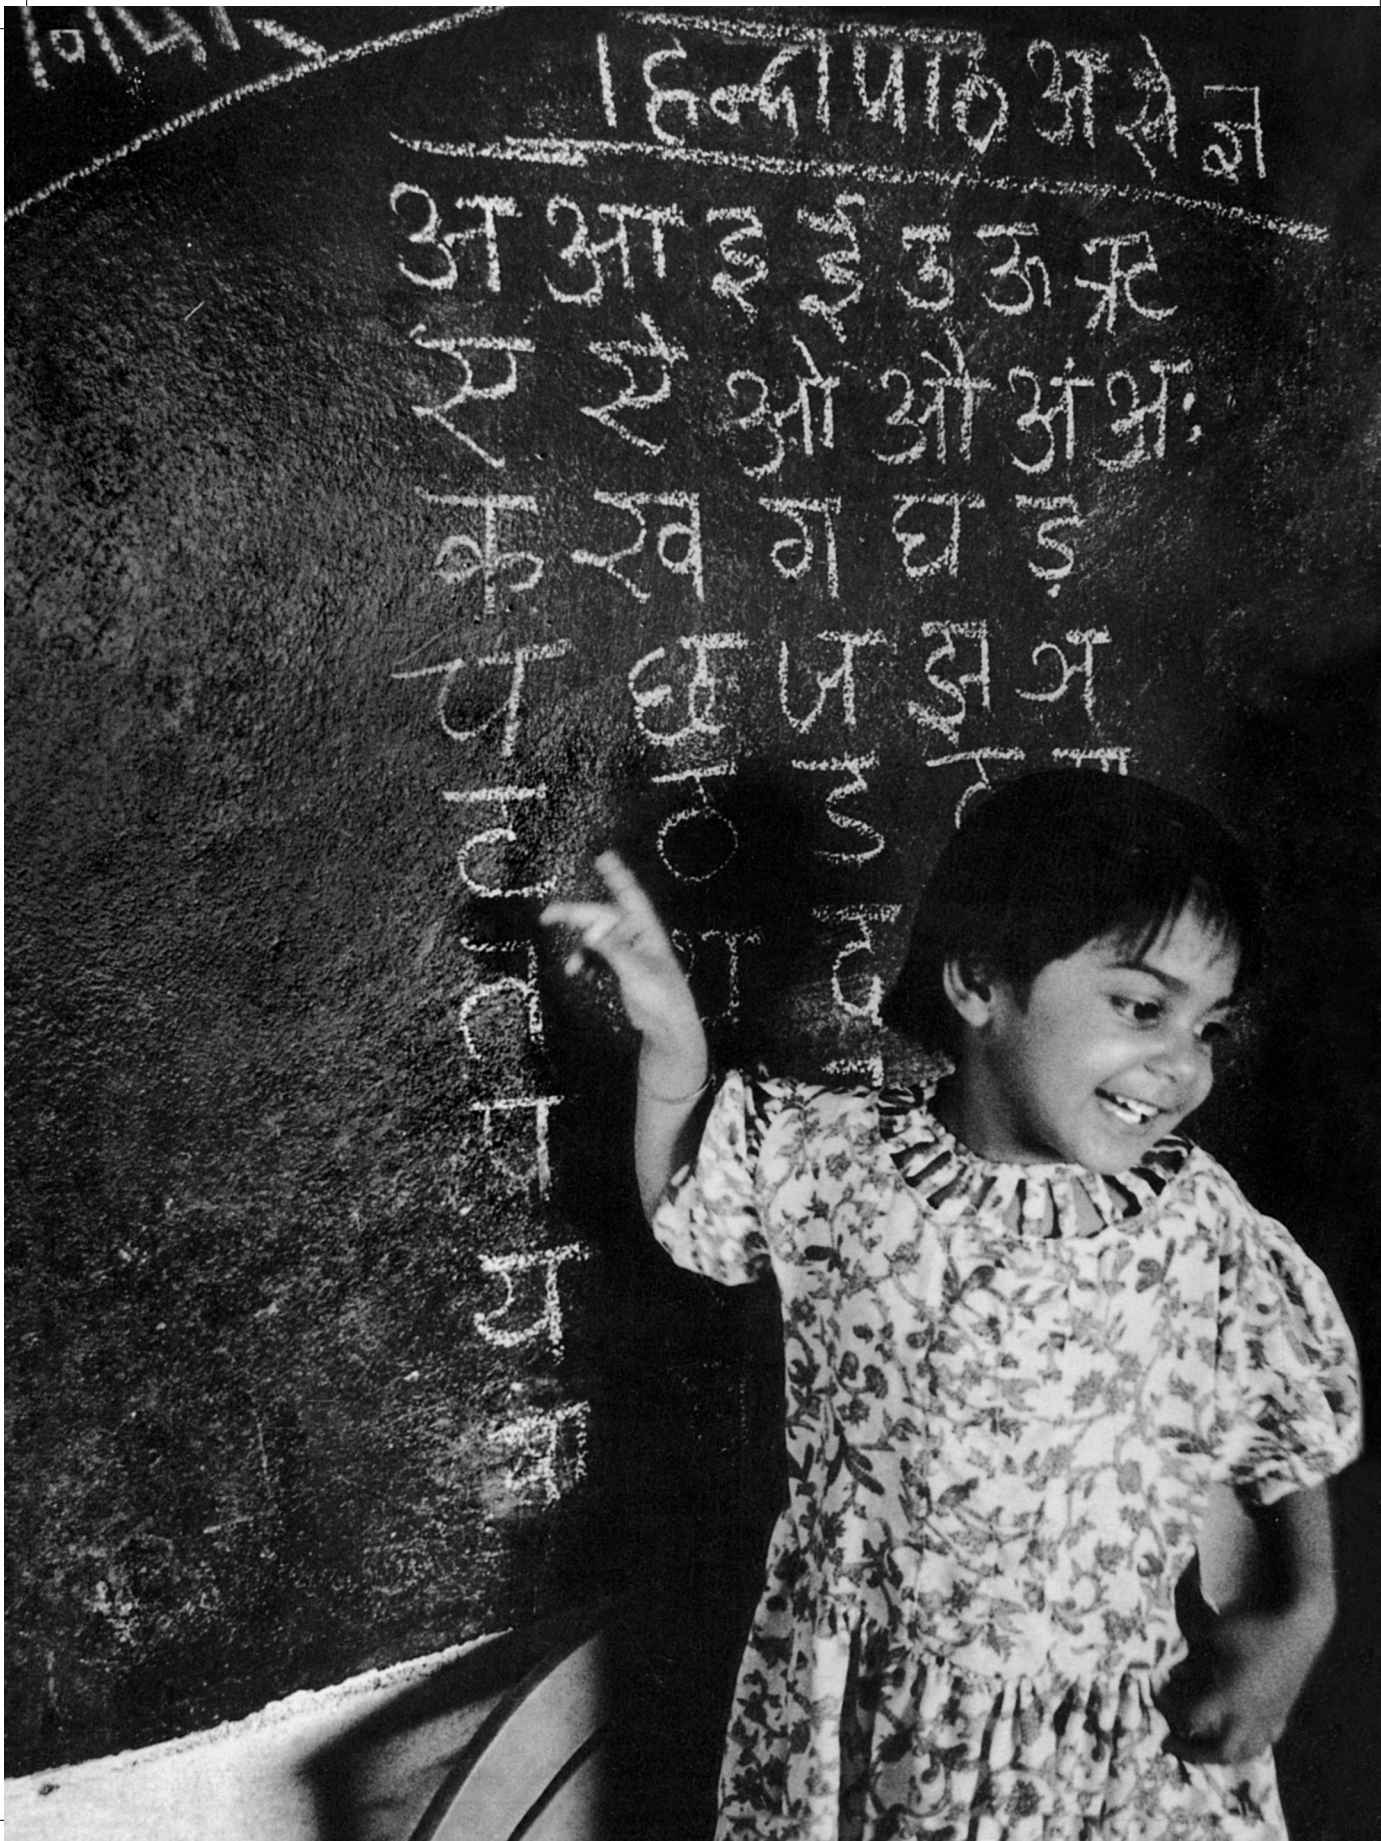 हिन्दी पाठ अ से ज्ञ
अ आ इ ई उ ऊ ऋ
ए ऐ ओ औ अं अः
क ख ग घ ड़
च छ ज झ ञ
ट ठ ड
त थ द
य